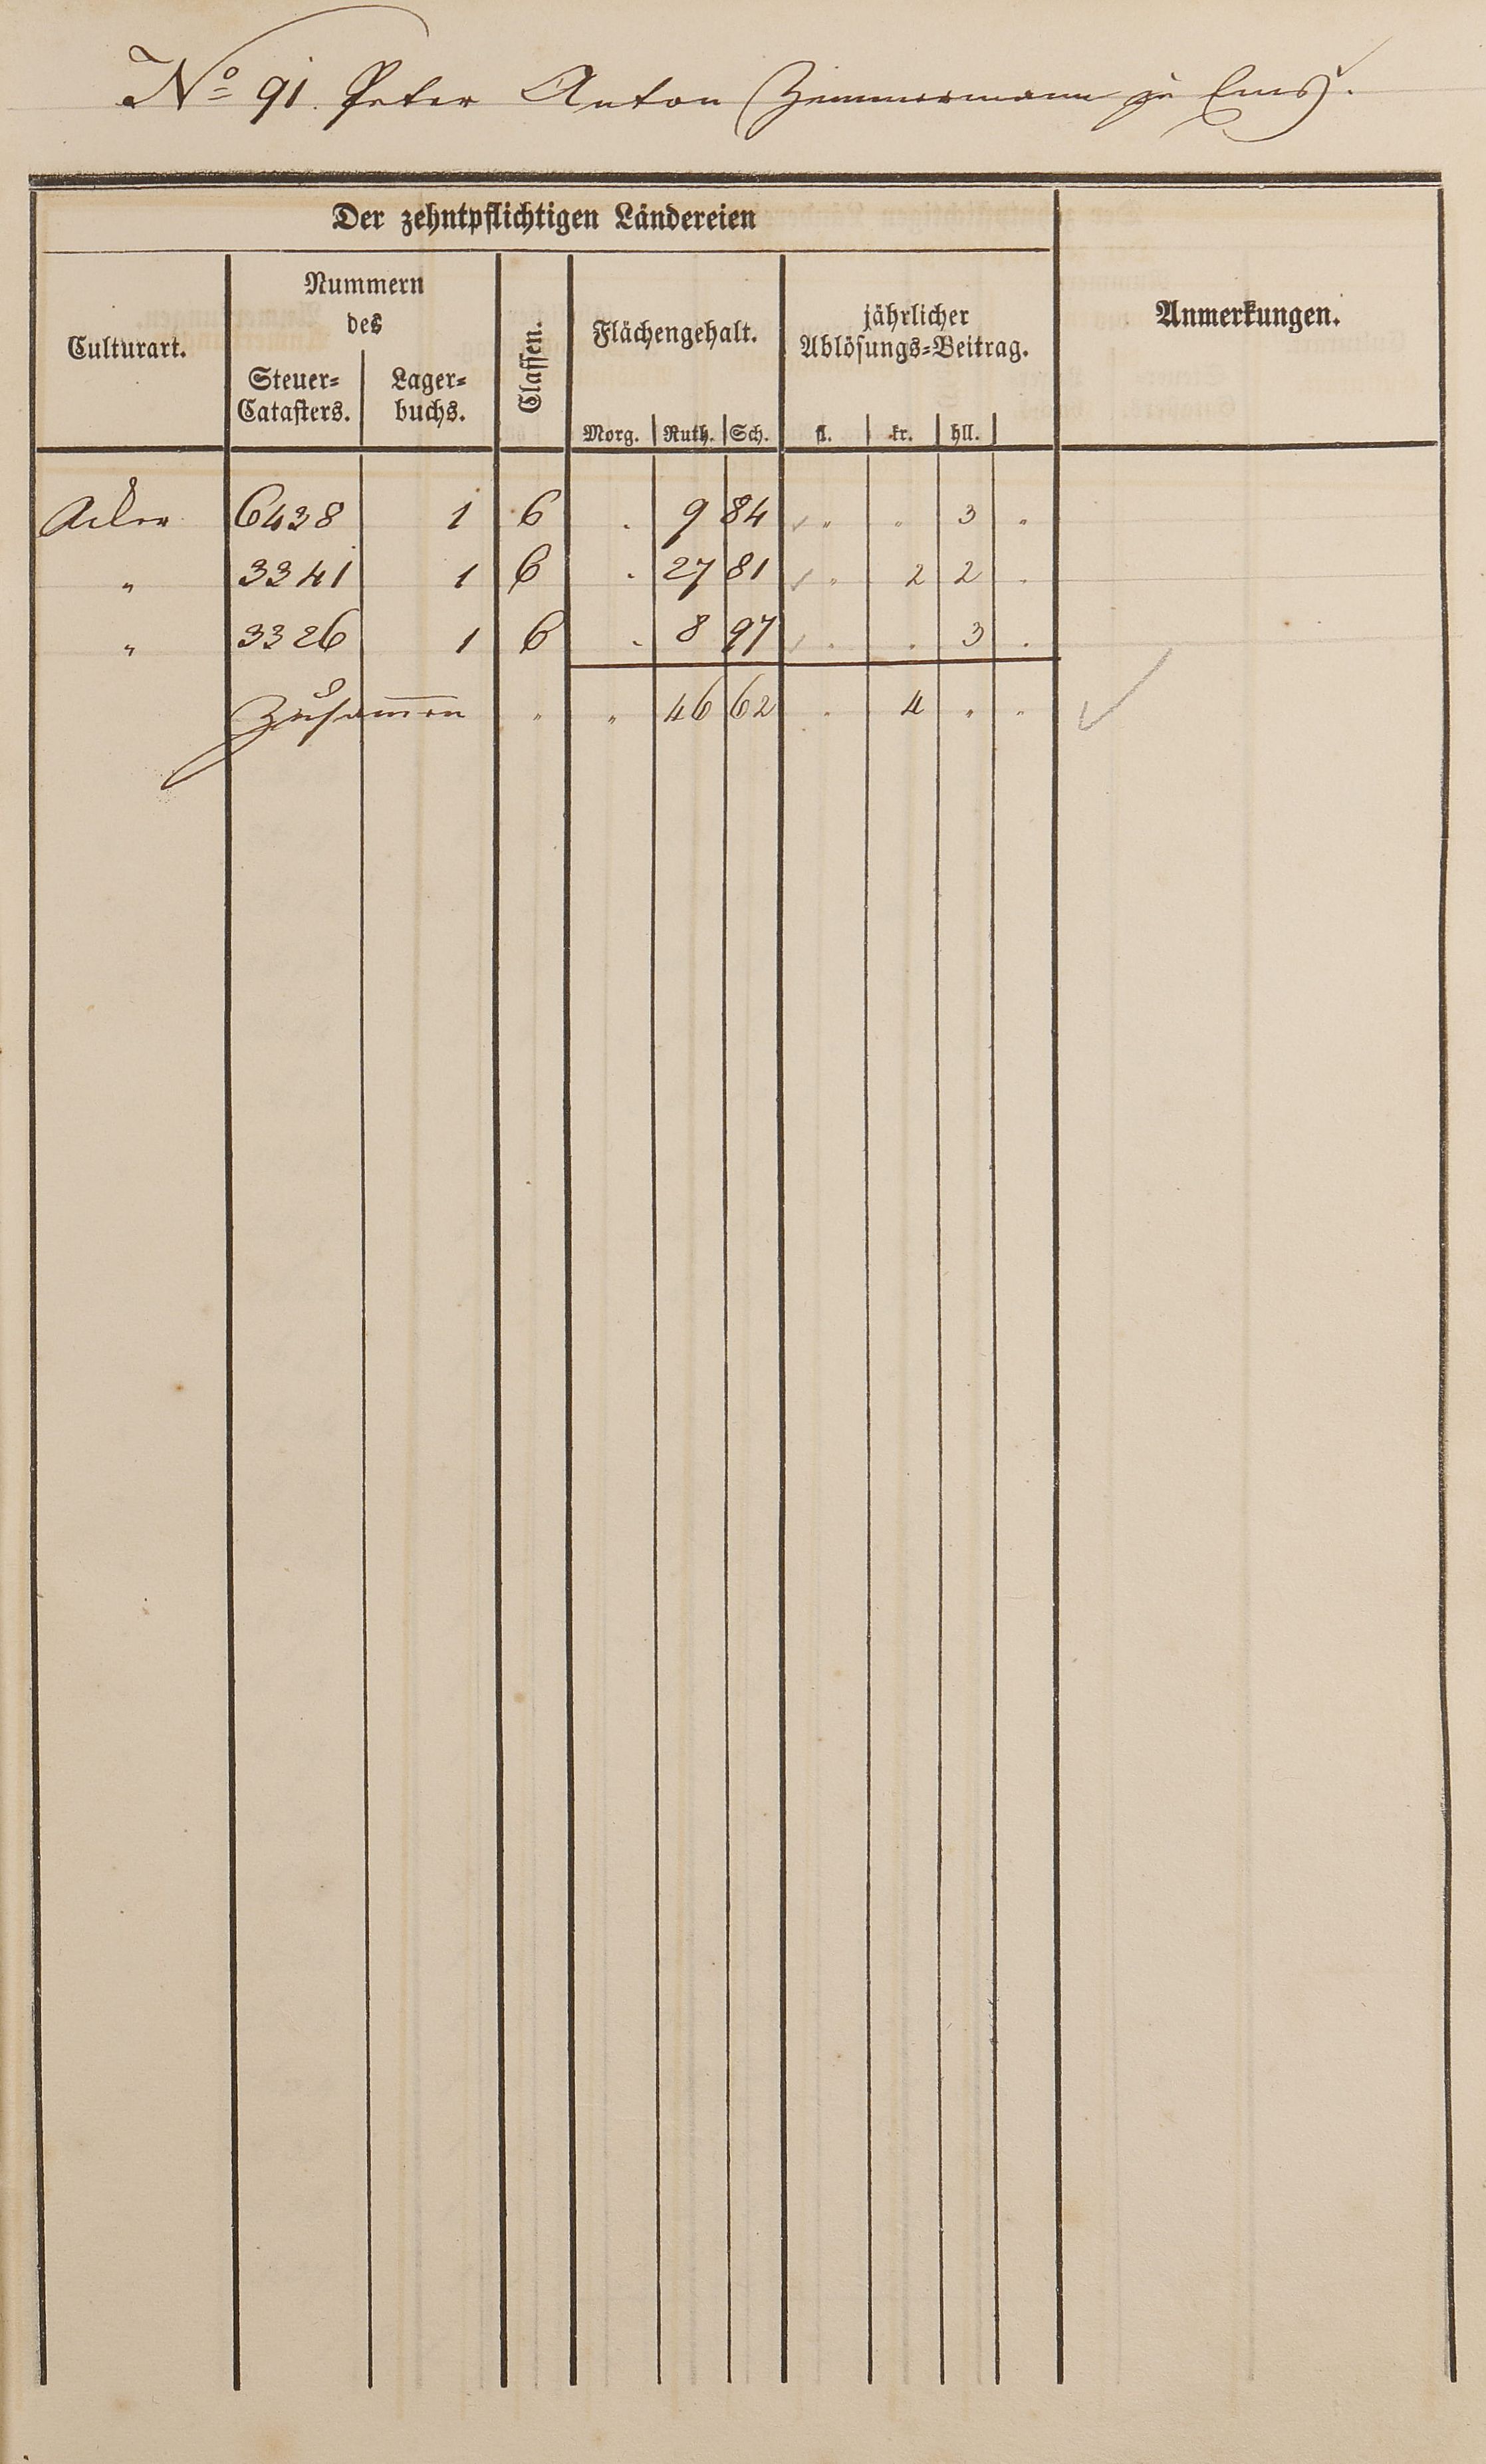 No 91. Peter Anton Zimmermann zu Ems.
Der zehntpflichtigen Ländereien
Culturart. Nummern des Steuer=Catasters. Lager=buchs. Classen. Flächengehalt. Morg. Ruth. Sch. jährlicher Ablösungs=Beitrag. fl. kr. hll. Anmerkungen.
Acker 6438 1 6 . 9 84 „ „ 3 „
„ 3341 1 6 . 27 81 „ 2 2 .
„ 3326 1 6 . 8 97 . . 3 .
Zusammen „ „ 46 62 . 4 „ „